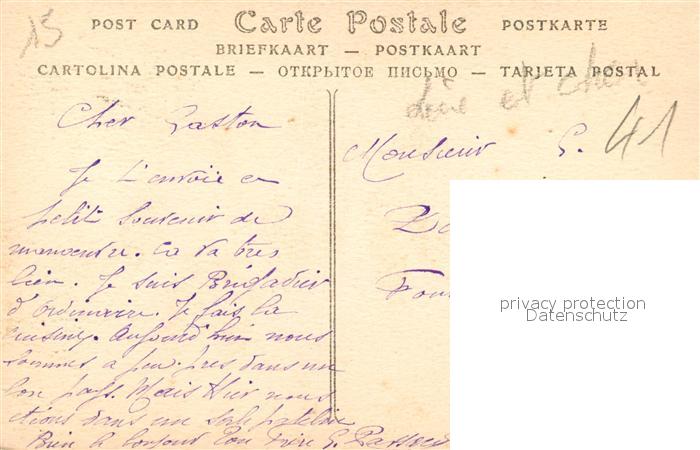 15
POST CARD Carte Postale POSTKARTE
BRIEFKAART — POSTKAART
CARTOLINA POSTALE — ОТКРЫТОЕ ПИСЬМО — TARJETA POSTAL
et cher
41
Cher Gaston
Je t'envoie ce
petit souvenir de
manoeuvre. Ca va tres
bien. Je suis Brigadier
d'ordinaire. Je fais la
cuisine. Aujourd'hui nous
sommes a peu pres dans un
bon pays. Mais Hier nous
etions dans un sale
Bien le bonjour Ton frère G.
Monsieur G.
privacy protection
Datenschutz